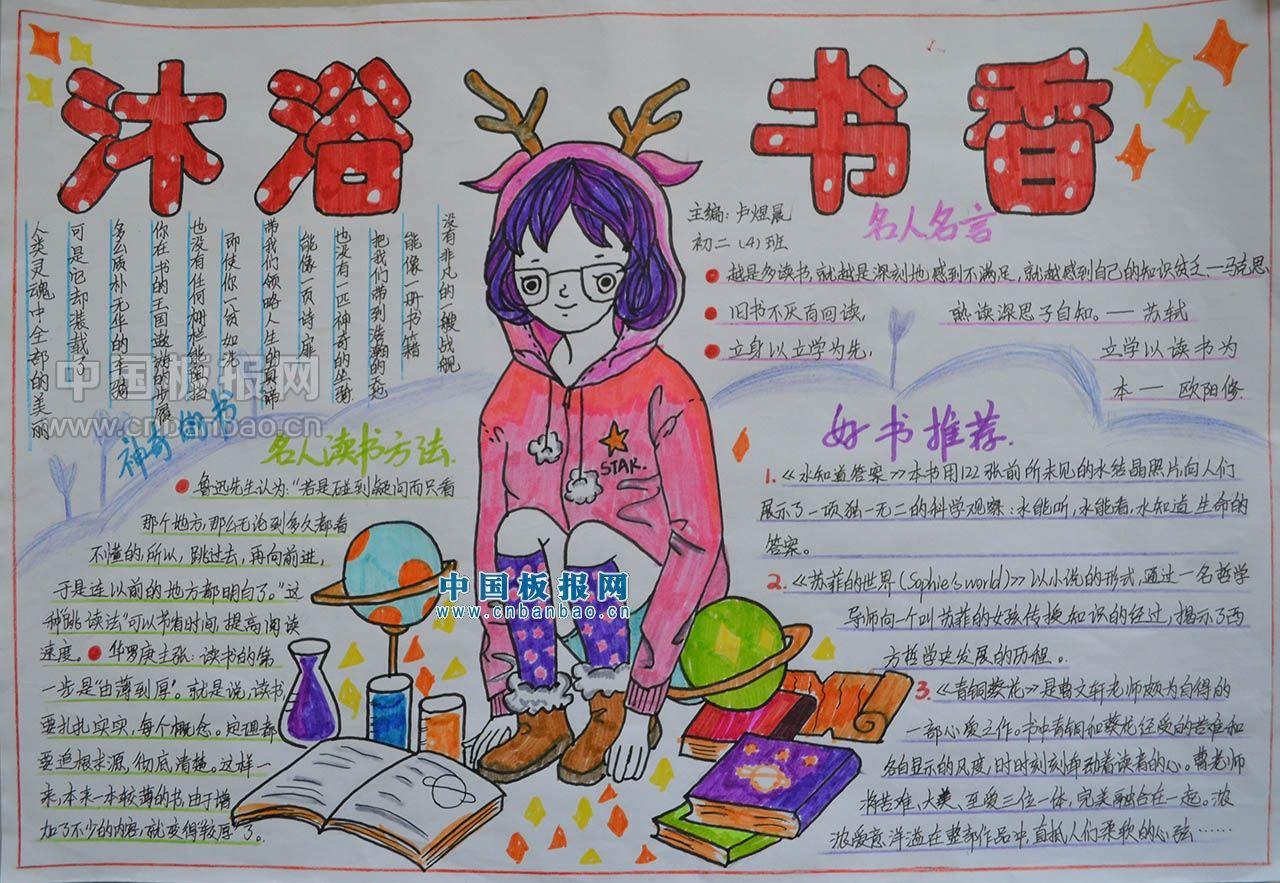 沐浴书香
主编：卢煜晨
初二（4）班
没有非凡的一艘战舰
能像一册书籍
把我们带到浩瀚的天地
也没有一匹神奇的坐骑
能像一页诗扉
带我们领略人生的真谛
即使你一贫如洗
也没有任何栅栏能阻挡
你在书的王国遨游的步履
多么质朴无华的车骑
可是它却装载了
人类灵魂中全部的美丽
神奇的书
名人名言
越是多读书，就越是深刻地感到不满足，就越感到自己的知识贫乏——马克思
旧书不厌百回读，熟读深思子自知。——苏轼
立身以立学为先，立学以读书为
本——欧阳修
名人读书方法
鲁迅先生认为："若是碰到疑问而只看
那个地方，那么无论到多久都看
不懂的，所以，跳过去，再向前进，
于是连以前的地方都明白了。"这
种"跳读法"可以节省时间，提高阅读
速度。华罗庚主张：读书的第
一步是"由薄到厚"。就是说，读书
要扎扎实实，每个概念。定理都
要追根求源，彻底清楚。这样一
来，本来一本较薄的书，由于增
加了不少的内容，就变得"较厚"了。
好书推荐
1.《水知道答案》本书用122张前所未见的水结晶照片向人们
展示了一项独一无二的科学观察：水能听，水能看，水知道生命的
答案。
2.《苏菲的世界(Sophie's world)》以小说的形式，通过一名哲学
导师向一个叫苏菲的女孩传授知识的经过，揭示了西
方哲学史发展的历程。
3.《青铜葵花》是曹文轩老师颇为自得的
一部心爱之作。书中青铜和葵花经受的苦难和
各自显示的风度，时时刻刻牵动着读者的心。曹老师
将苦难、大美、至爱三位一体，完美融合在一起。浓
浓爱意洋溢在整部作品中，直抵人们柔软的心弦……
STAR.
中国板报网
www.cnbanbao.cn
中国板报网
www.cnbanbao.cn